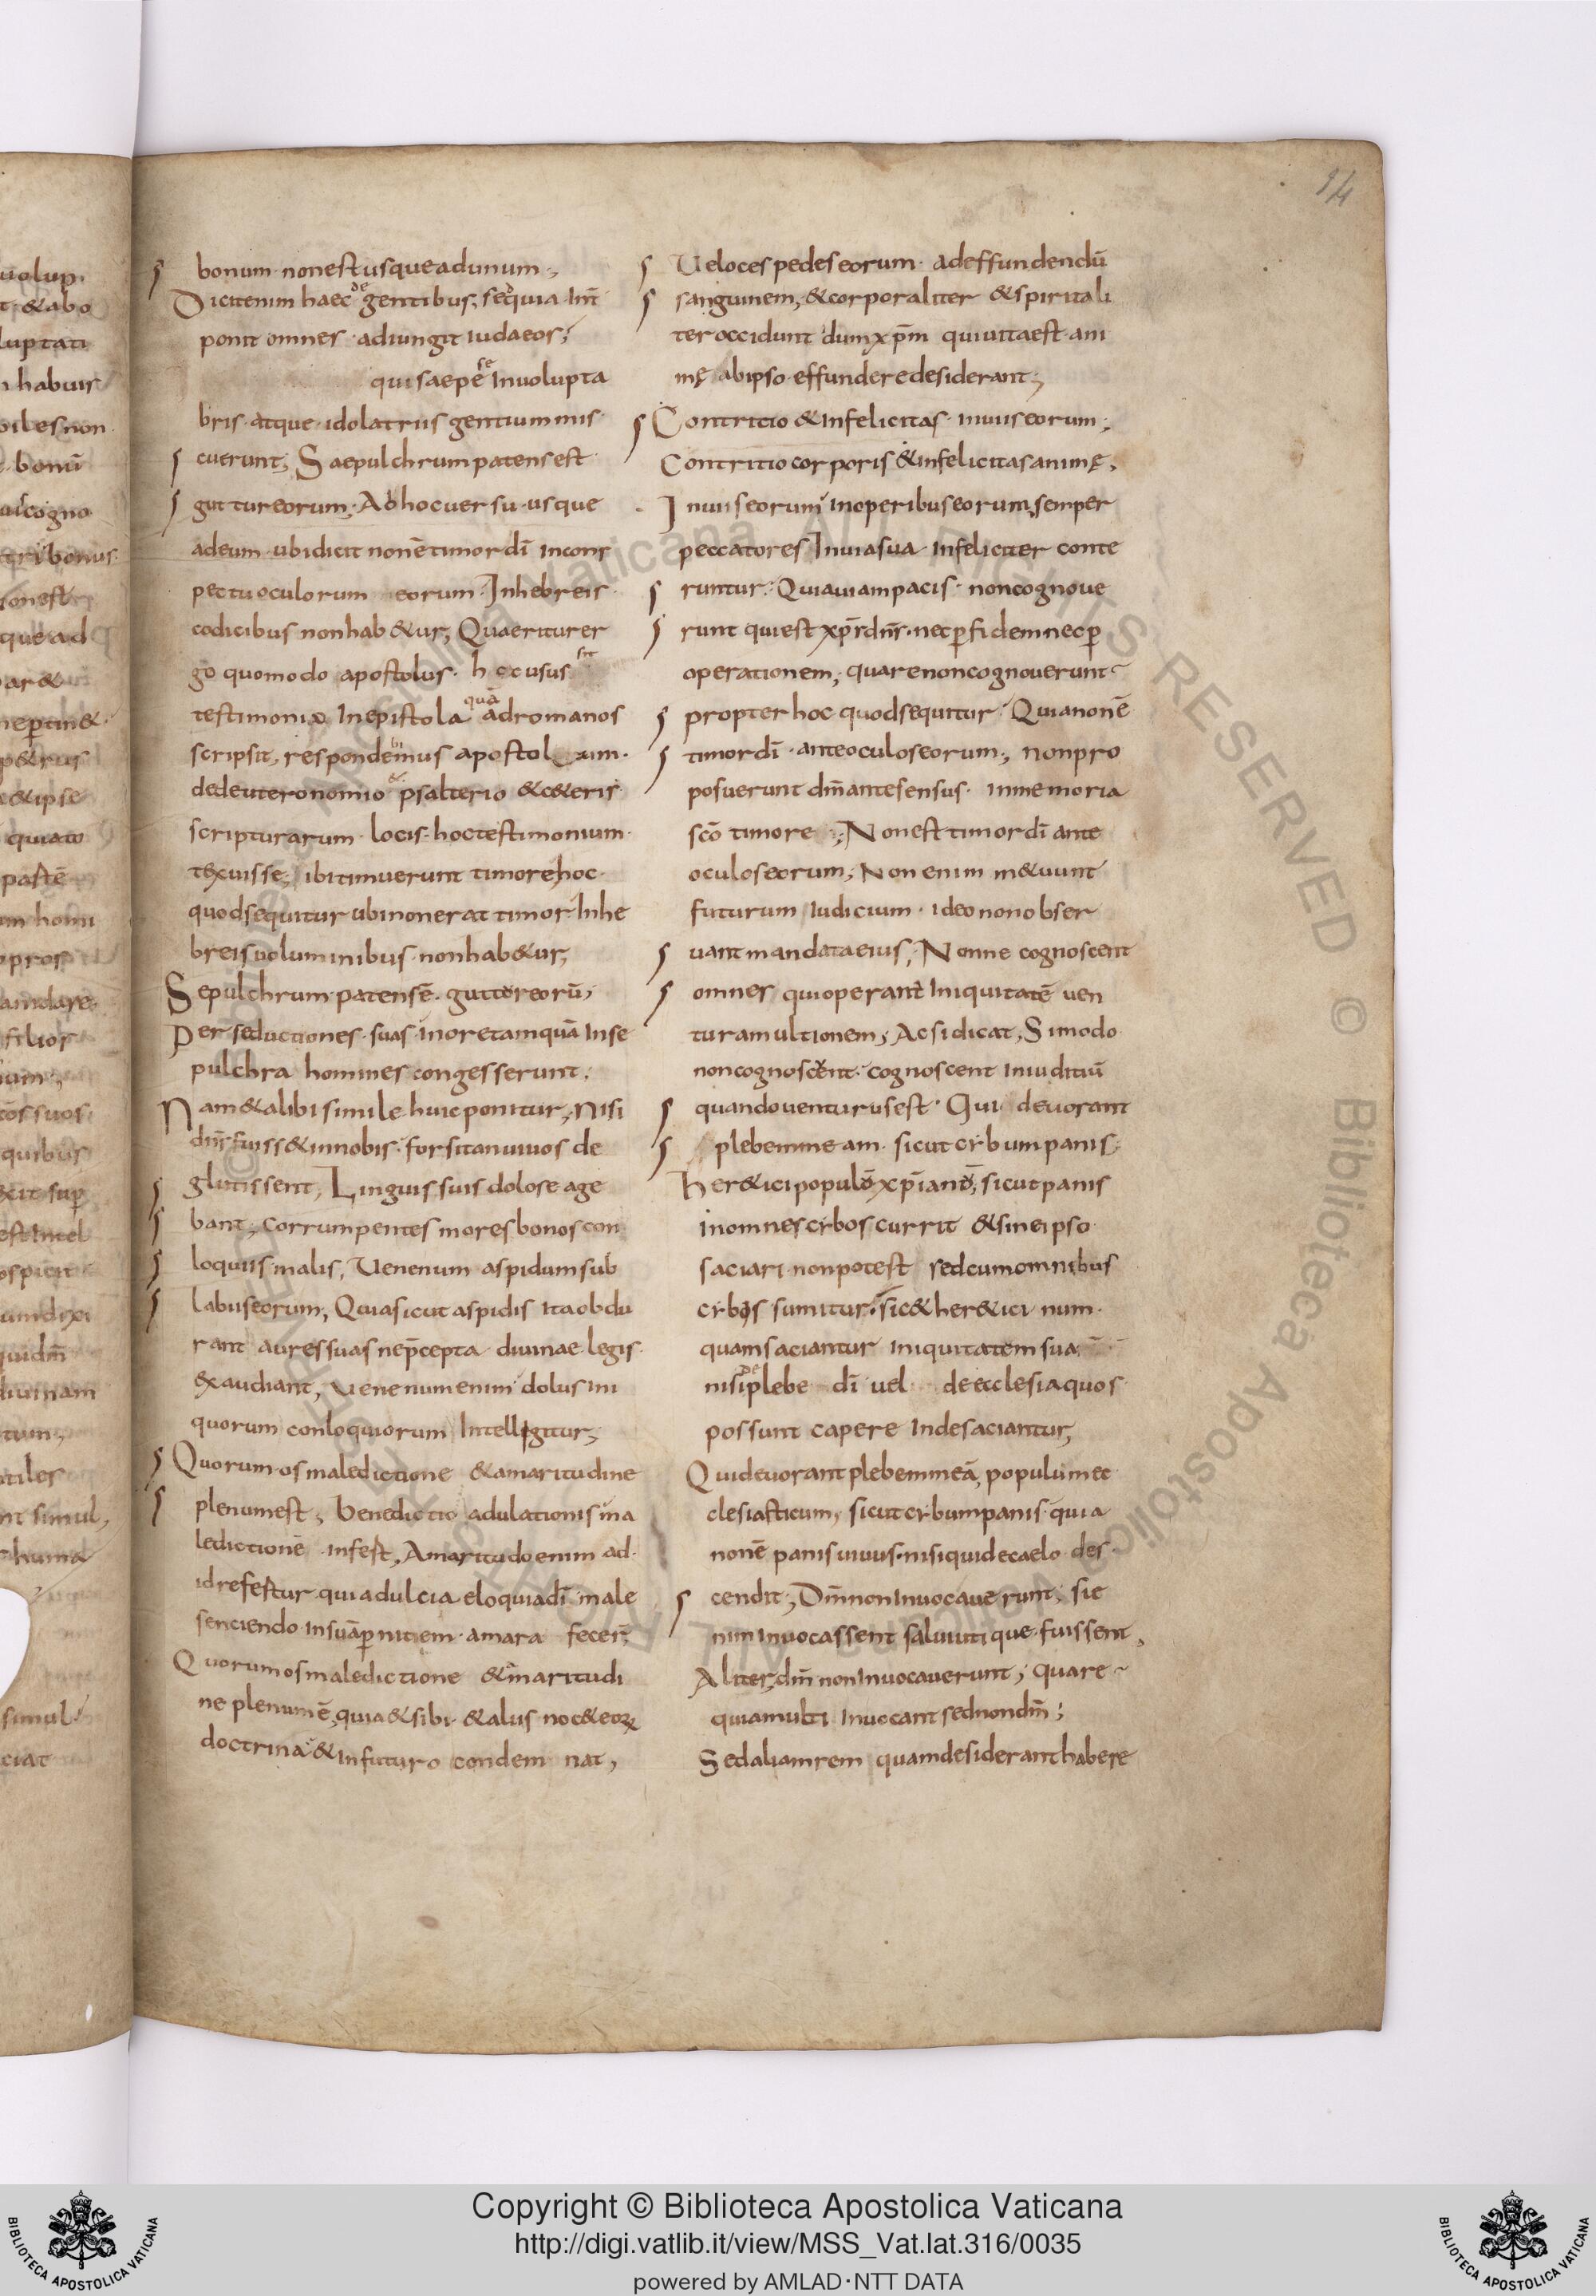 14
bonum · non est usque ad unum ;
Dicit enim haec de gentibus, sed quia int̄
ponit omnes · adiungit iudaeos ;
qui saepe se Inuolupta
bris · atque · idolatriis gentium mis
cuerunt ; Saepulchrum patens est
guttur eorum ; Ab hoc uersu · usque
ad eum · ubi dicit non ē timor dī in cons
pectu oculorum eorum · In hebreis
codicibus non hab&ur ; Quaeritur er
go quomodo apostolus · hoc usus sit
testimonio In epistola quā ad romanos
scripsit, respondebimus apostolum ·
de deuteronomio & psalterio &c&eris
scripturarum · locis · hoc testimonium ·
texuisse, ibi timuerunt timore hoc ·
quod sequitur ubi non erat timor In he
breis uoluminibus · non hab&ur,
Sepulchrum patens ē · guttur eorū,
Per seductiones · suas · in ore tamquā In se
pulchra homines congesserunt ;
Nam & alibi simile huic ponitur, Nisi
dn̄s fuiss& in nobis · forsitan uiuos de
glutissent, Linguis suis dolose age
bant, corrumpentes mores bonos con
loquiis malis, Uenenum aspidum sub
labiis eorum, Quia sicut aspidis ita obdu
rant aures suas ne p̄cepta diuinae legis
exaudiant, uenenum enim dolus ini
quorum conloquiorum Intelligitur,
Quorum os maledictione & amaritudine
plenum est, benedictio adulationis ma
ledictionē infest, Amaritudo enim ad
id refertur quia dulcia eloquia dī male
senciendo in suā pnitiem · amara fecer̄
Quorum os maledictione & amaritudi
ne plenum ē, quia & sibi · & aliis noc& eoꝝ
doctrina & In futuro condemnat,
Ueloces pedes eorum · ad effundendū
sanguinem, & corporaliter & spiritali
ter occidunt dum xp̄m qui uita est · ani
mę ab ipso effundere desiderant ;
Contritio & infelicitas · in uiis eorum ;
Contritio corporis & infelicitas animę,
In uiis eorum in operibus eorum, semper
peccatores In uia sua Infeliciter conte
runtur · Quia uiam pacis · non cognoue
runt qui est xp̄s dn̄s · nec p fidem nec p
operationem, quare non cognouerunt
propter hoc quod sequitur · Quia non ē
timor dī · ante oculos eorum ; non pro
posuerunt dm̄ ante sensus · in memoria
scō timore ; Non est timor dī ante
oculos eorum, Non enim m&uunt
futurum Iudicium · ideo non obser
uant mandata eius, Nonne cognoscent
omnes qui operant Iniquitatē uen
turam ultionem, Ac si dicat, Si modo
non cognoscent · cognoscent in iuditiū
quando uenturus est · Qui deuorant
plebem meam · sicut cybum panis ·
Her&ici populō xp̄ianō, sicut panis
in omnes cybos currit & sine ipso
saciari non potest sed cum omnibus
cybos sumitur · sic & her&ici num
quam saciantur iniquitatem sua
nisi de plebe dī uel de ecclesia quos
possunt capere Inde saciantur,
Qui deuorant plebem meā, populum ec
clesiasticum, sicut cybum panis · quia
non ē panis uiuus · nisi qui de caelo des
cendit, Dm̄ non Inuocauerunt, si e
nim Inuocassent salui utique · fuissent,
Aliter, dm̄ non Inuocauerunt, quare
quia multi Inuocant sed non dm̄ ;
Sed aliam rem quam desiderant habere
Copyright © Biblioteca Apostolica Vaticana
http://digi.vatlib.it/view/MSS_Vat.lat.316/0035
powered by AMLAD·NTT DATA
BIBLIOTECA APOSTOLICA VATICANA
BIBLIOTECA APOSTOLICA VATICANA